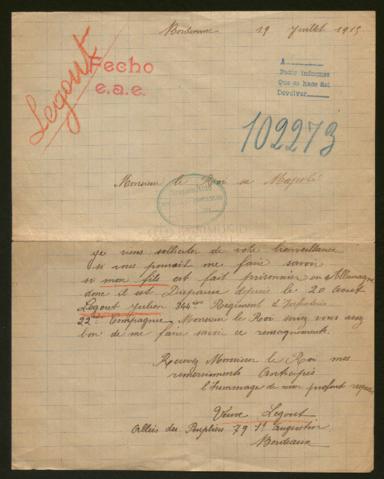 Bordeaux 19 Juillet 1915
Legout
Fecho
e.a.e.
A
Pasto informes
Que se hace del
Devolver
102273
Monsieur le Roi sa Majesté
je viens solliciter de vote bienveillance
si vous pouvait me faire savoir
si mon fils est fait prisonnier en Allemagne
donc il est Disparue depuis le 20 Aout
Legout Julien 344ème Regiment d'Infanterie
22ème Compagnie Monsieur le Roi serez vous assez
bon de me faire savoir ce renseignement.
Recevez Monsieur le Roi mes
remerciements Anticipés
l'hommage de mon profond respect
Veuve Legout
Allées des Peupliers 79 St augustin
Bordeaux